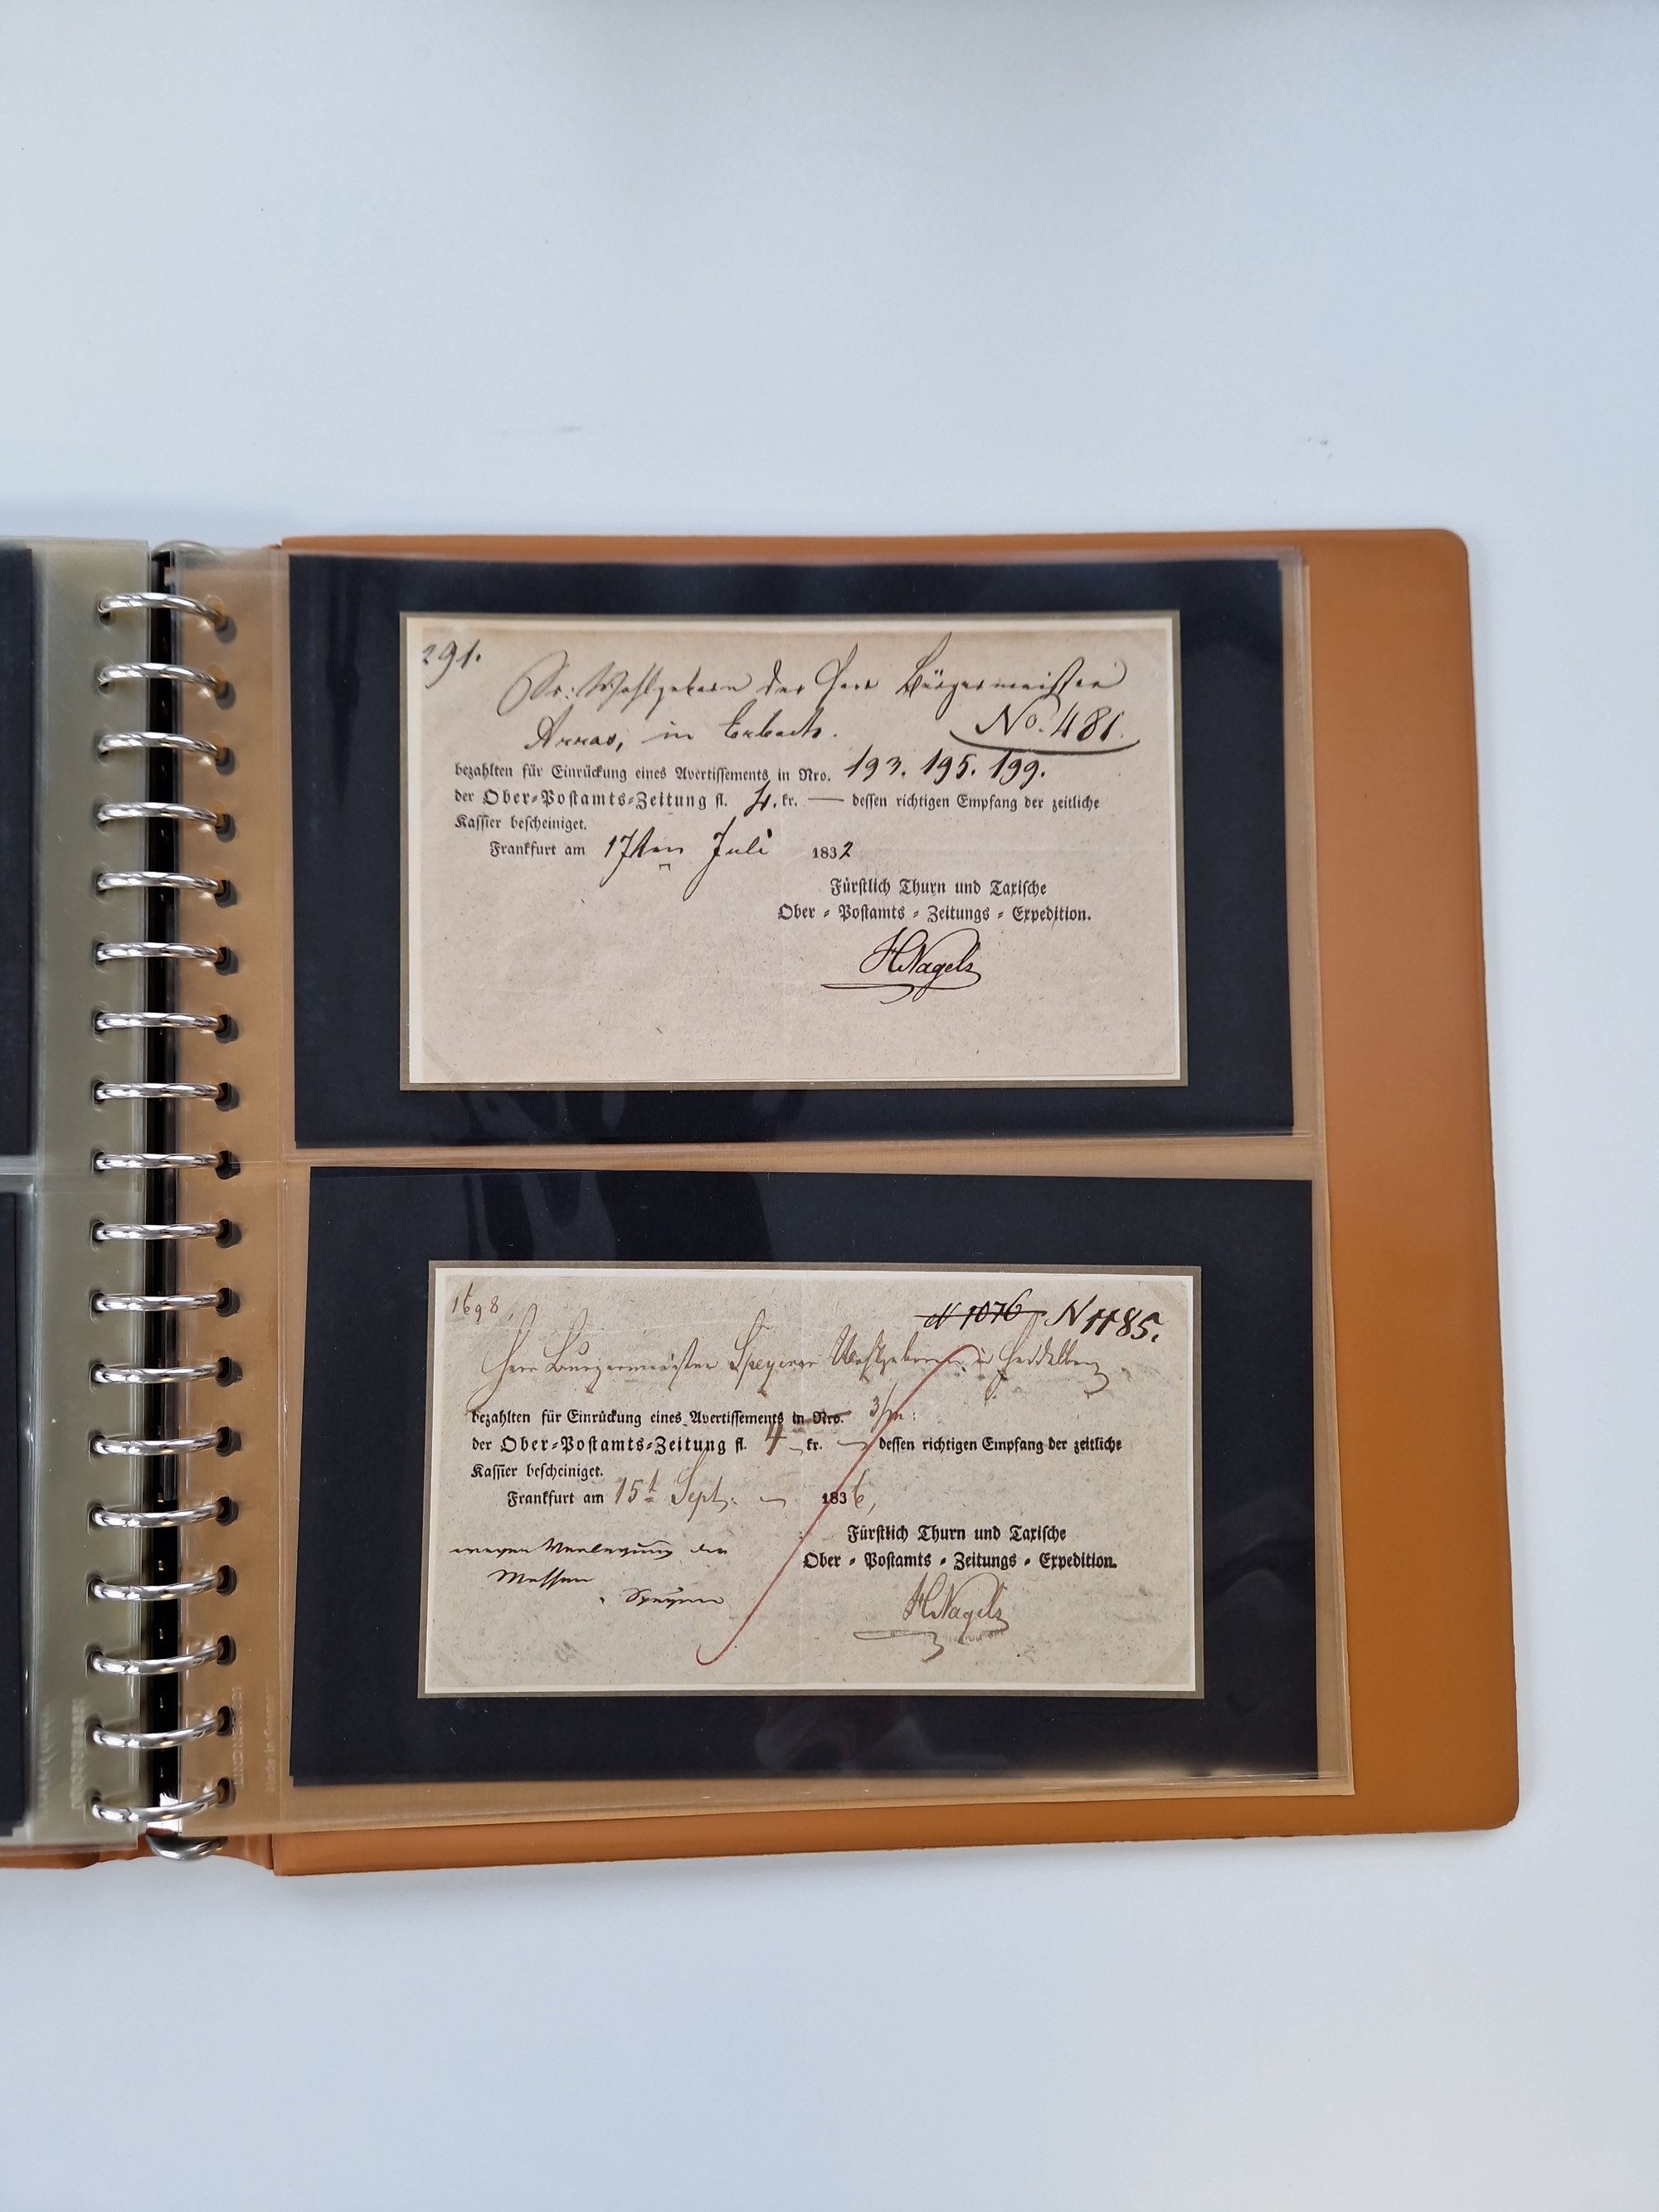 291.
Sr: Wohlgeborn der Herr Bürgermeister
in Erbach.
No. 481.
bezahlten für Einrückung eines Avertissements in Nro. 193. 195. 199.
der Ober-Postamts-Zeitung fl. 4. kr. — dessen richtigen Empfang der zeitliche
Kassier bescheiniget.
Frankfurt am 17ten Juli 1832
Fürstlich Thurn und Taxische
Ober - Postamts - Zeitungs - Expedition.
HNagels
1698.
N 1076 N 1185.
Herr Burgermeister Speyerer Wohlgeboren in Heidelberg
bezahlten für Einrückung eines Avertissements in Nro. 3/m:
der Ober-Postamts-Zeitung fl. 4 kr. — dessen richtigen Empfang der zeitliche
Kassier bescheiniget.
Frankfurt am 15t Sept. — 1836,
wegen Verlegung der
Messen
Fürstlich Thurn und Taxische
Ober - Postamts - Zeitungs - Expedition.
HNagels
LINDNER
Made in Germany